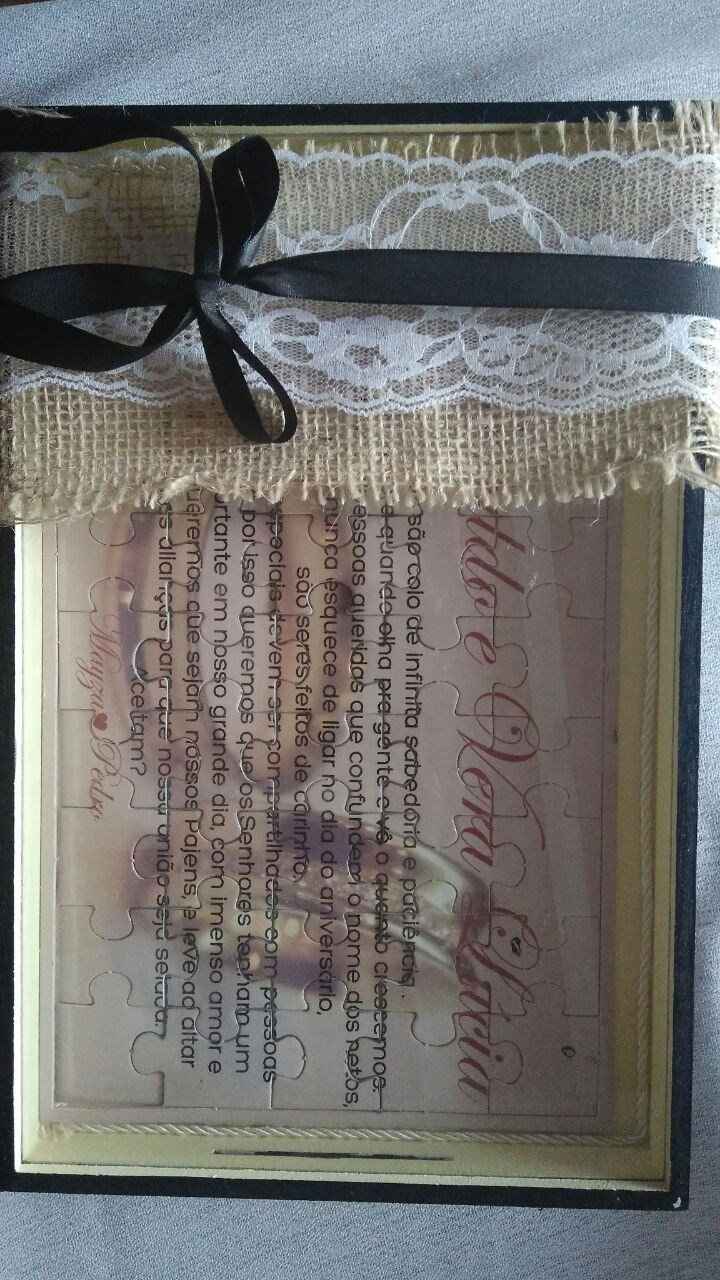 e Vera Lúcia
são colo de infinita sabedoria e paciência .
e quando olha pra gente e vê o quanto crescemos.
essoas queridas que confundem o nome dos netos,
nunca esquece de ligar no dia do aniversário,
são seres feitos de carinho,
speciais devem ser compartilhados com pessoas
por isso queremos que os Senhores tenham um
rtante em nosso grande dia, com imenso amor e
ueremos que sejam nossos Pajens, e leve ao altar
s alianças para que nossa união seja selada.
ceitam?
Mayza Pedro